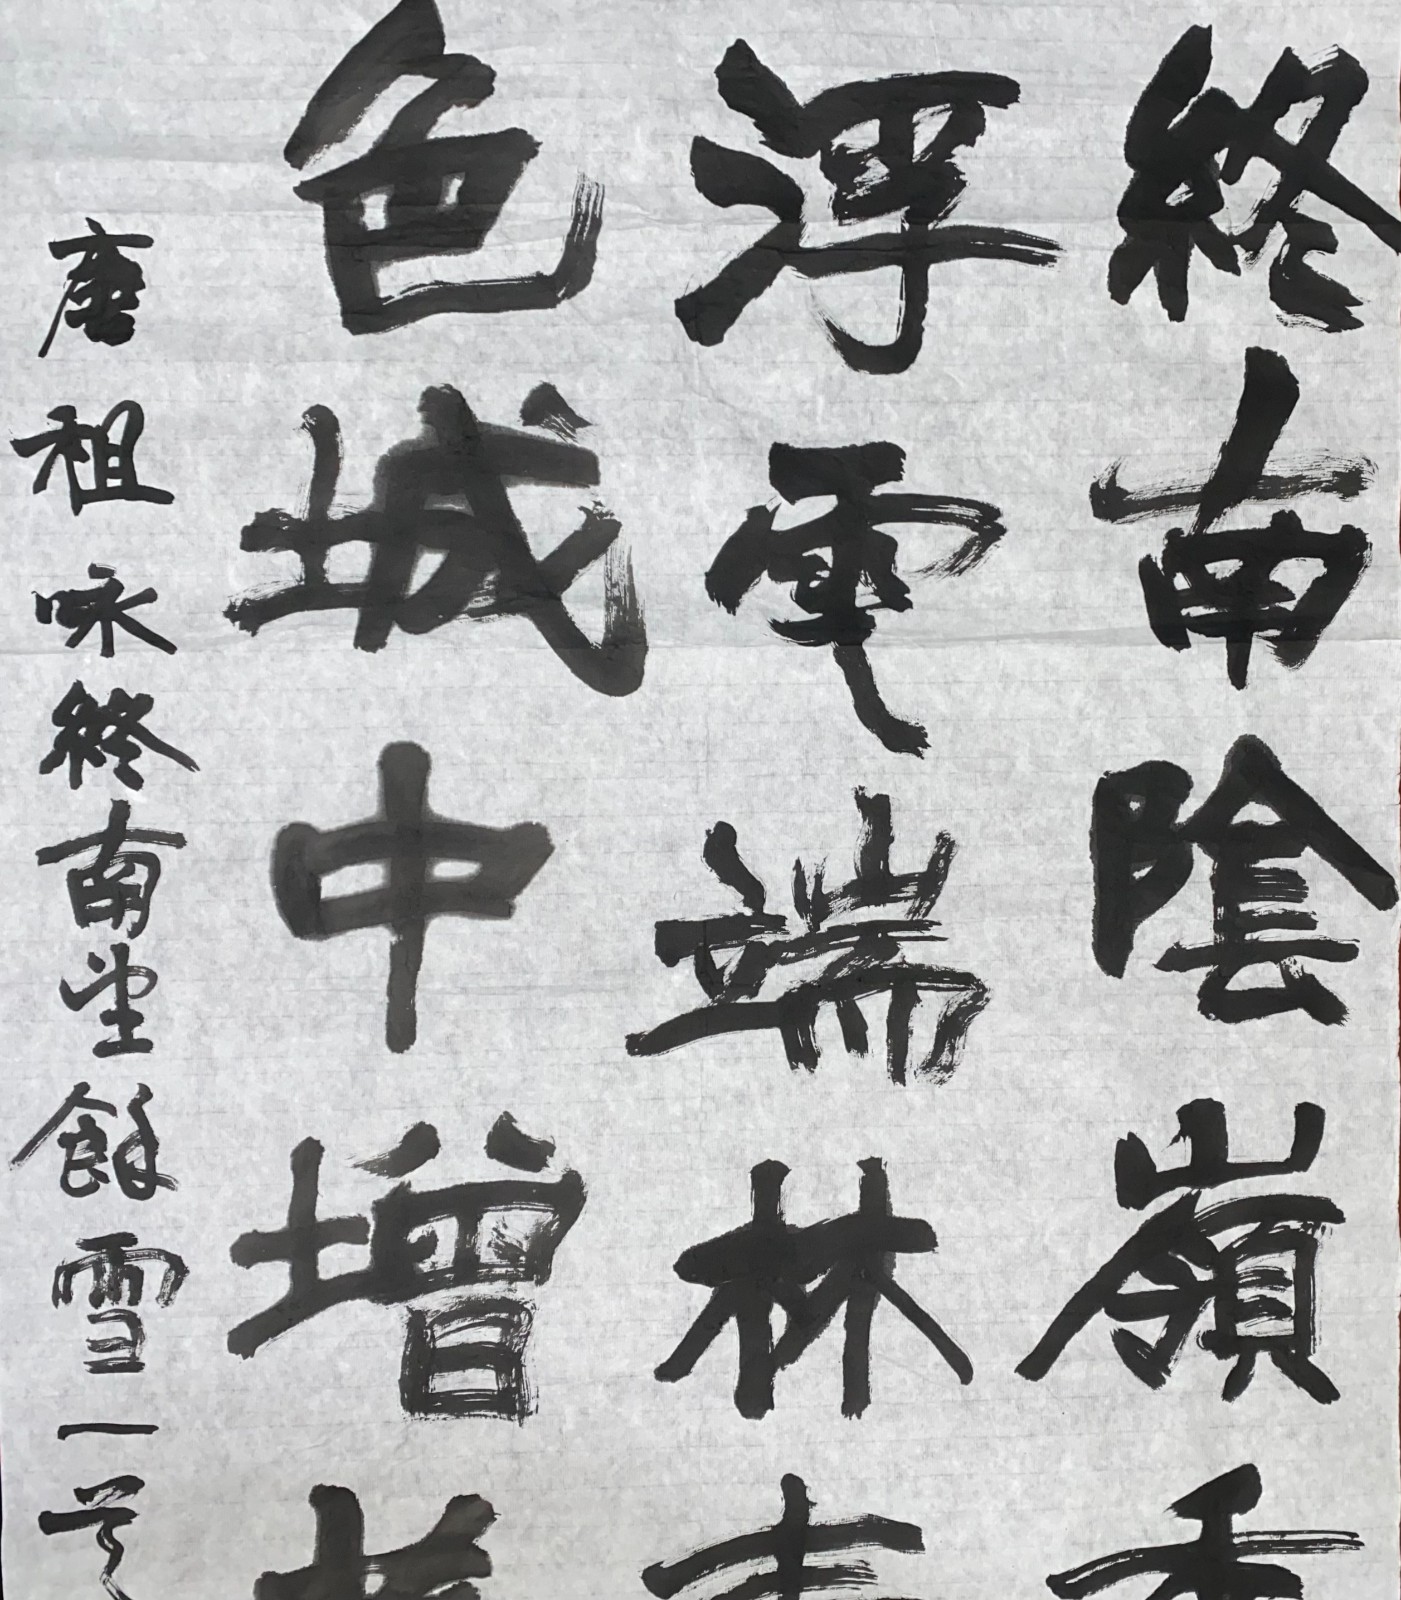 終南陰嶺
浮雲端林
色城中增
唐祖咏終南望餘雪一首